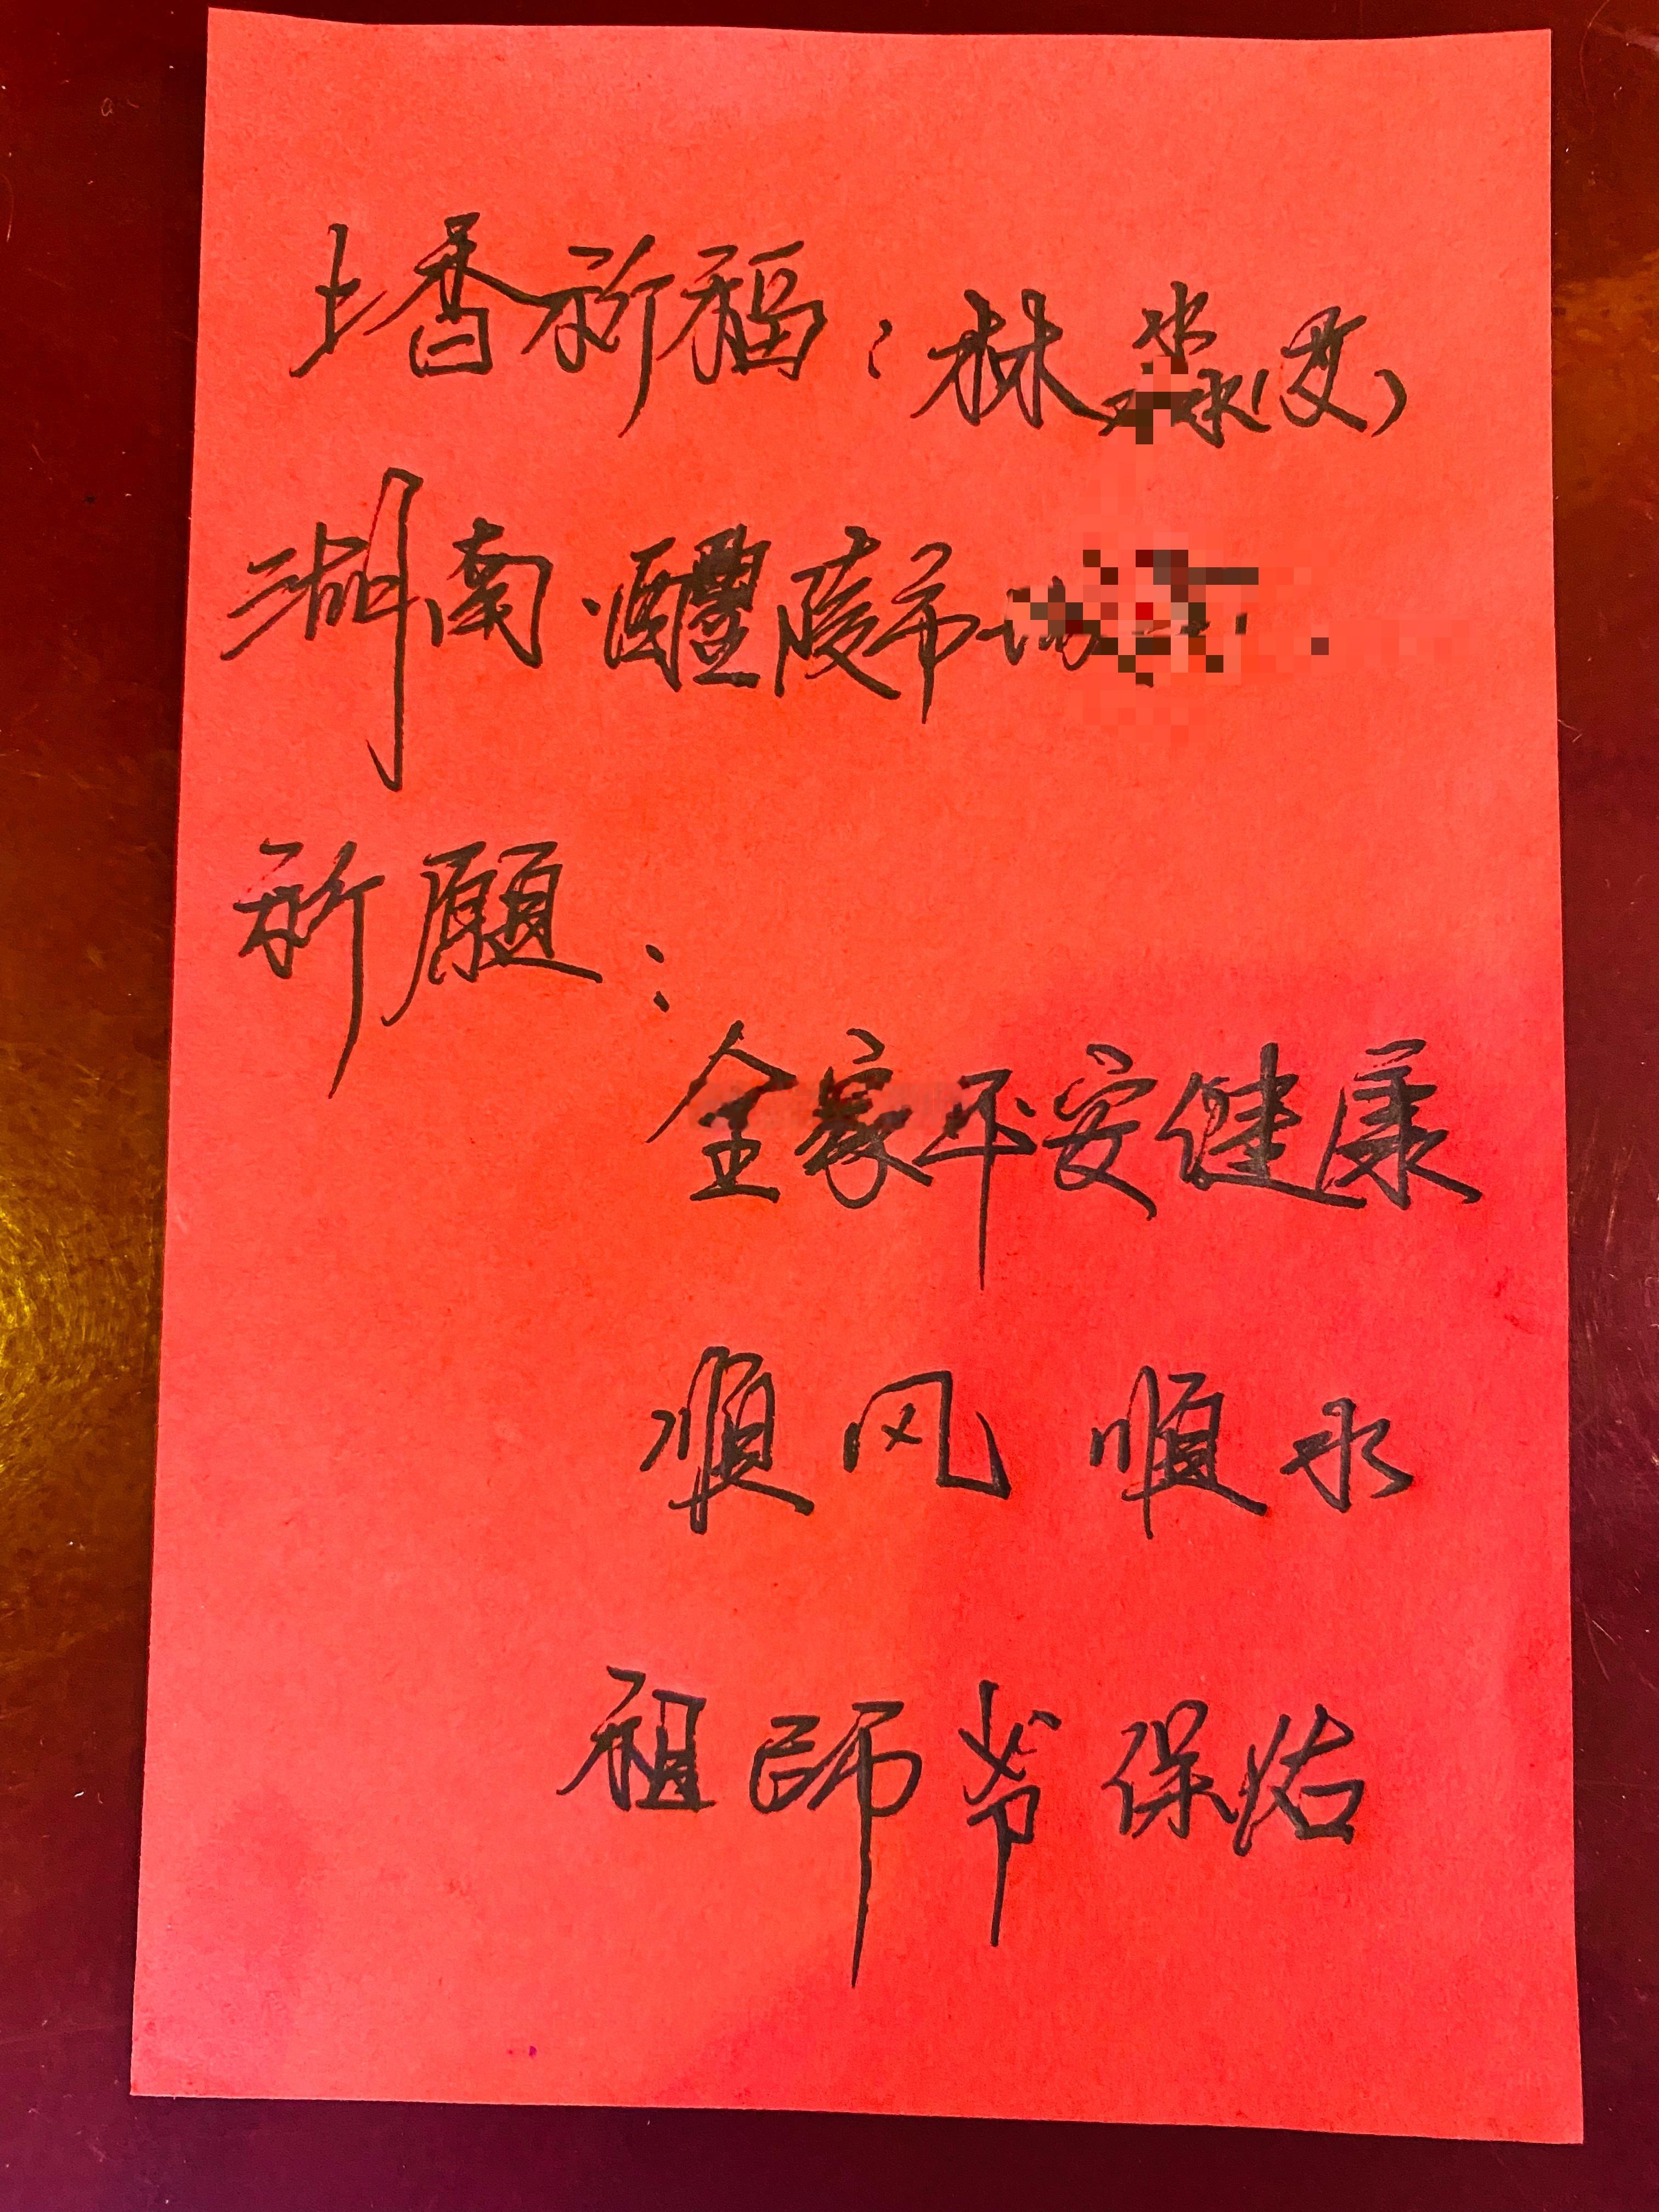 上香祈福:林(女)
湖南·醴陵市
祈願:
全家平安健康
順风順水
祖師爷保佑